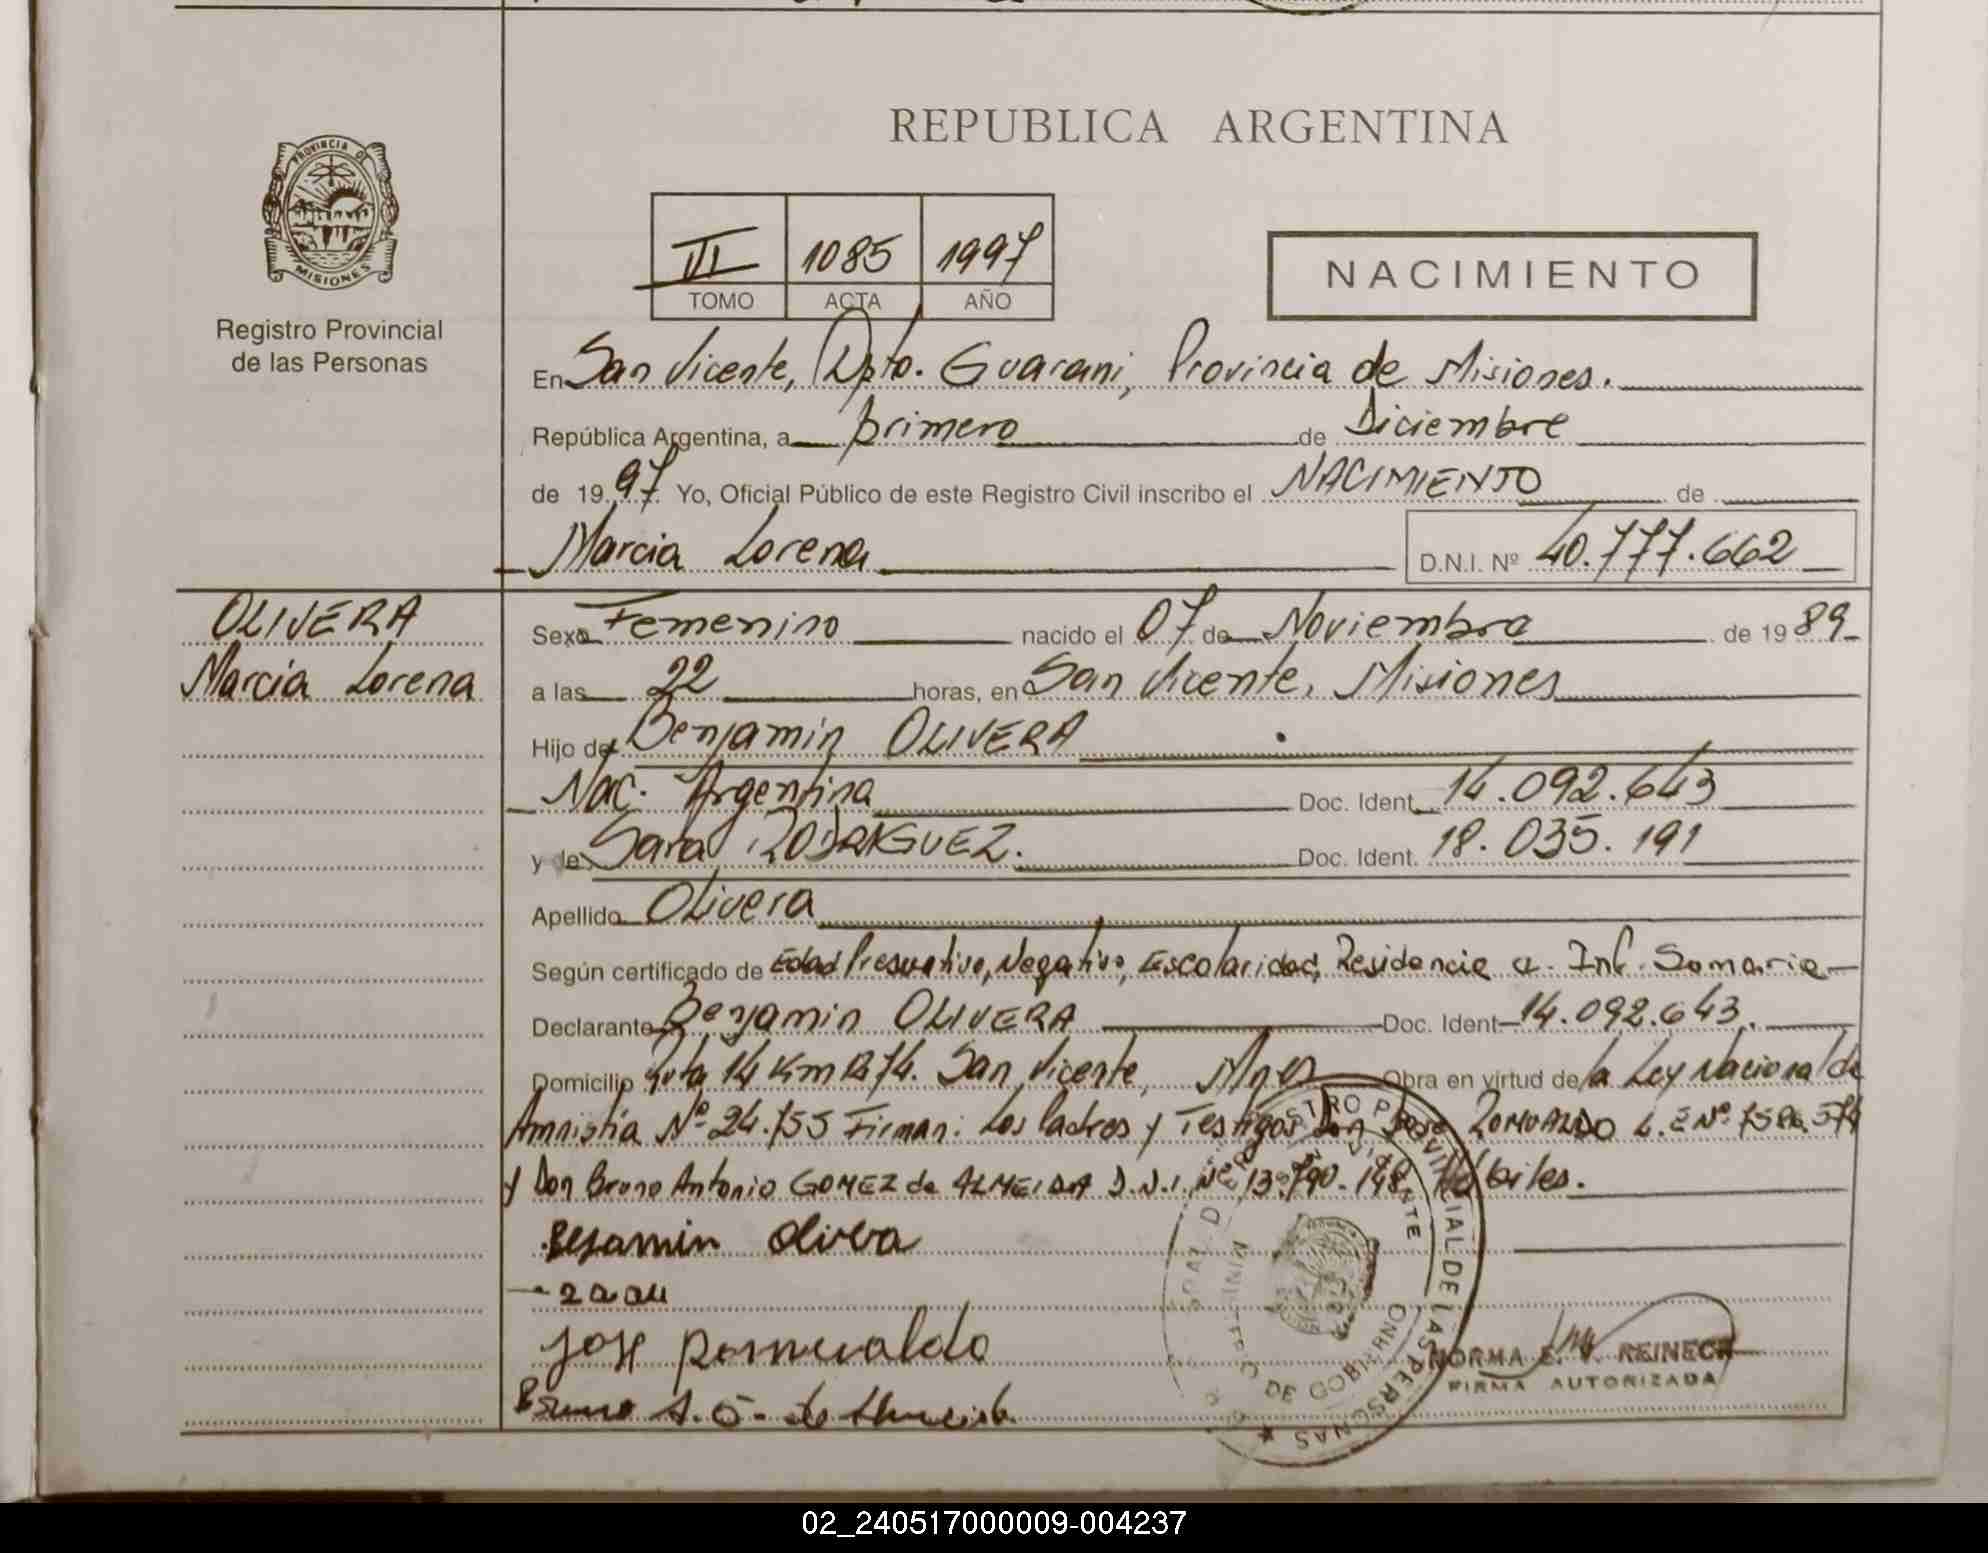 REPUBLICA ARGENTINA
PROVINCIA DE
MISIONES
Registro Provincial
de las Personas
VI 1085 1997
TOMO ACTA AÑO
NACIMIENTO
En San Vicente, Dpto. Guarani, Provincia de Misiones.
República Argentina, a primero de Diciembre
de 19 97 Yo, Oficial Público de este Registro Civil inscribo el NACIMIENTO de
Marcia Lorena D.N.I. Nº 40.777.662
OLIVERA
Marcia Lorena
Sexo Femenino nacido el 07 de Noviembre de 19 89
a las 22 horas, en San Vicente, Misiones
Hijo de Benjamin OLIVERA
Nac. Argentina Doc. Ident. 14.092.643
y de Sara RODRIGUEZ. Doc. Ident. 18.035.191
Apellido Olivera
Según certificado de Edad Presuntiva, Negativo, Escolaridad, Residencia e Inf. Sumaria
Declarante Benjamin OLIVERA Doc. Ident 14.092.643.
Domicilio Ruta 14 Km 1274. San Vicente, Mnes Obra en virtud de la Ley Nacional de
Amnistia Nº 24.755 Firman: Los Padres y Testigos Don Jose ROMUALDO L.E Nº
y Don Bruno Antonio GOMEZ de ALMEIDA D.N.I. Nº 13.790.148 Hábiles.
Benjamin Olivera
José Romualdo
Bruno A. G. de Almeida
REGISTRO PROVINCIAL DE LAS PERSONAS
SAN VICENTE
MINISTERIO DE GOBIERNO
NORMA E. V. REINECK
FIRMA AUTORIZADA
02_240517000009-004237